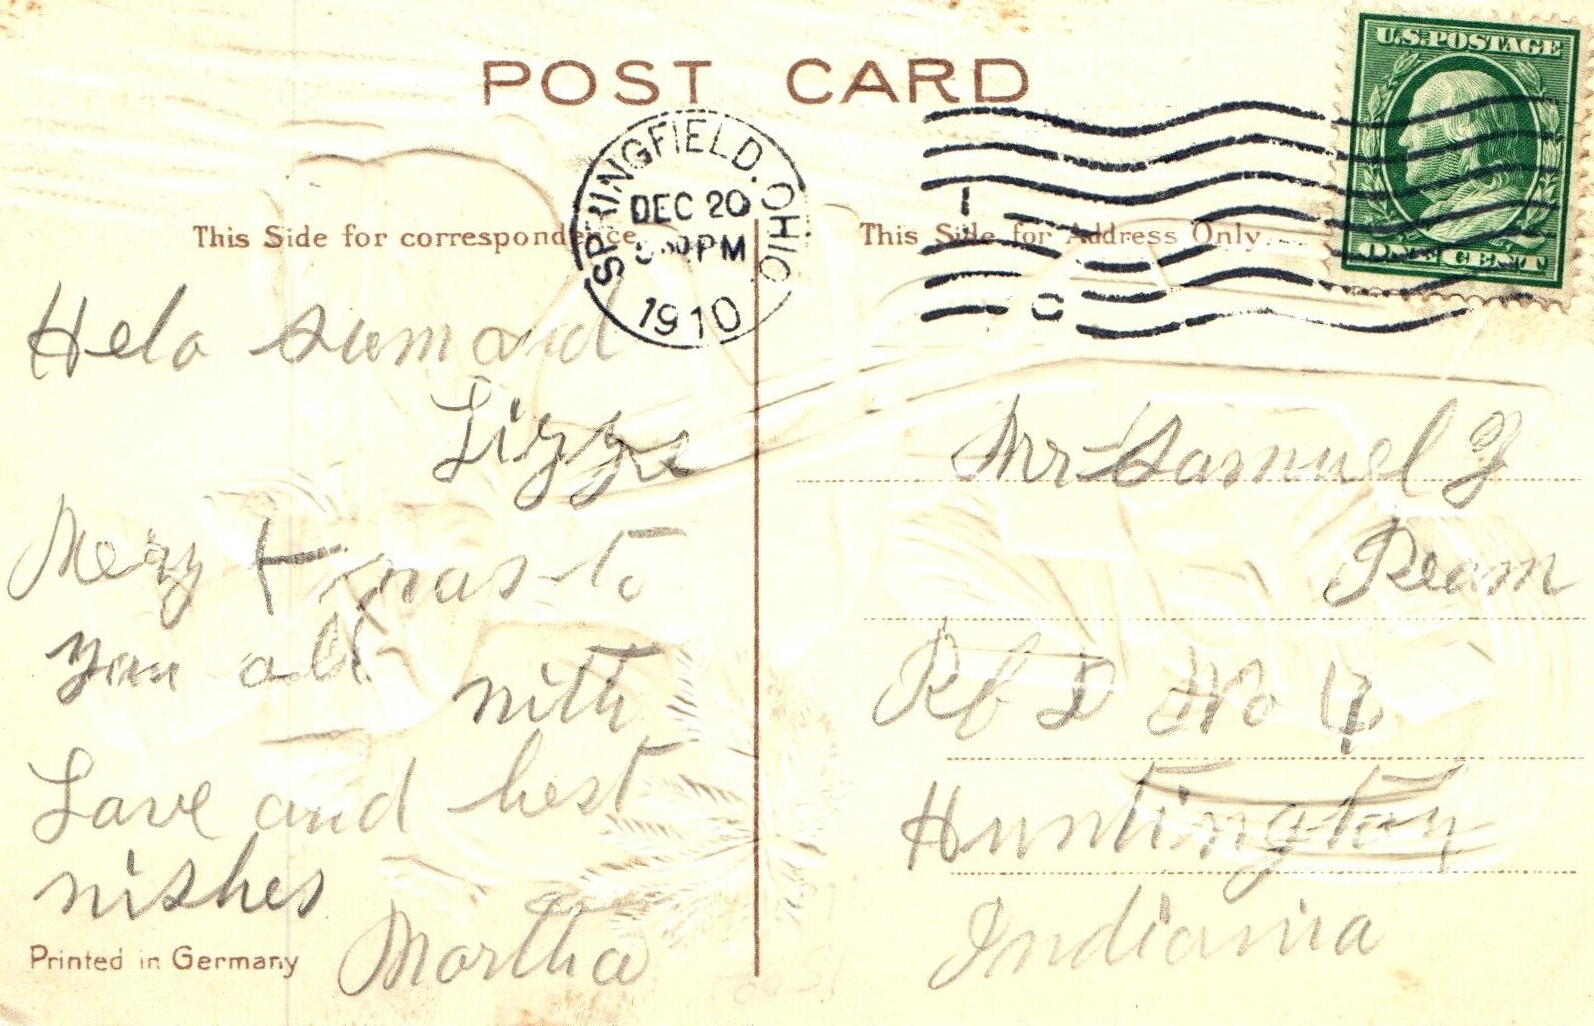 POST CARD
U.S.POSTAGE
ONE CENT
SPRINGFIELD. OHIO
DEC 20
PM
1910
This Side for correspondence
This Side for Address Only.
Helo Sam and
Lizzie
Mery Xmas to
you all
with
Love and best
wishes
Martha
Printed in Germany
Mr Samuel
Ream
R f D No 4
Huntington
Indiana